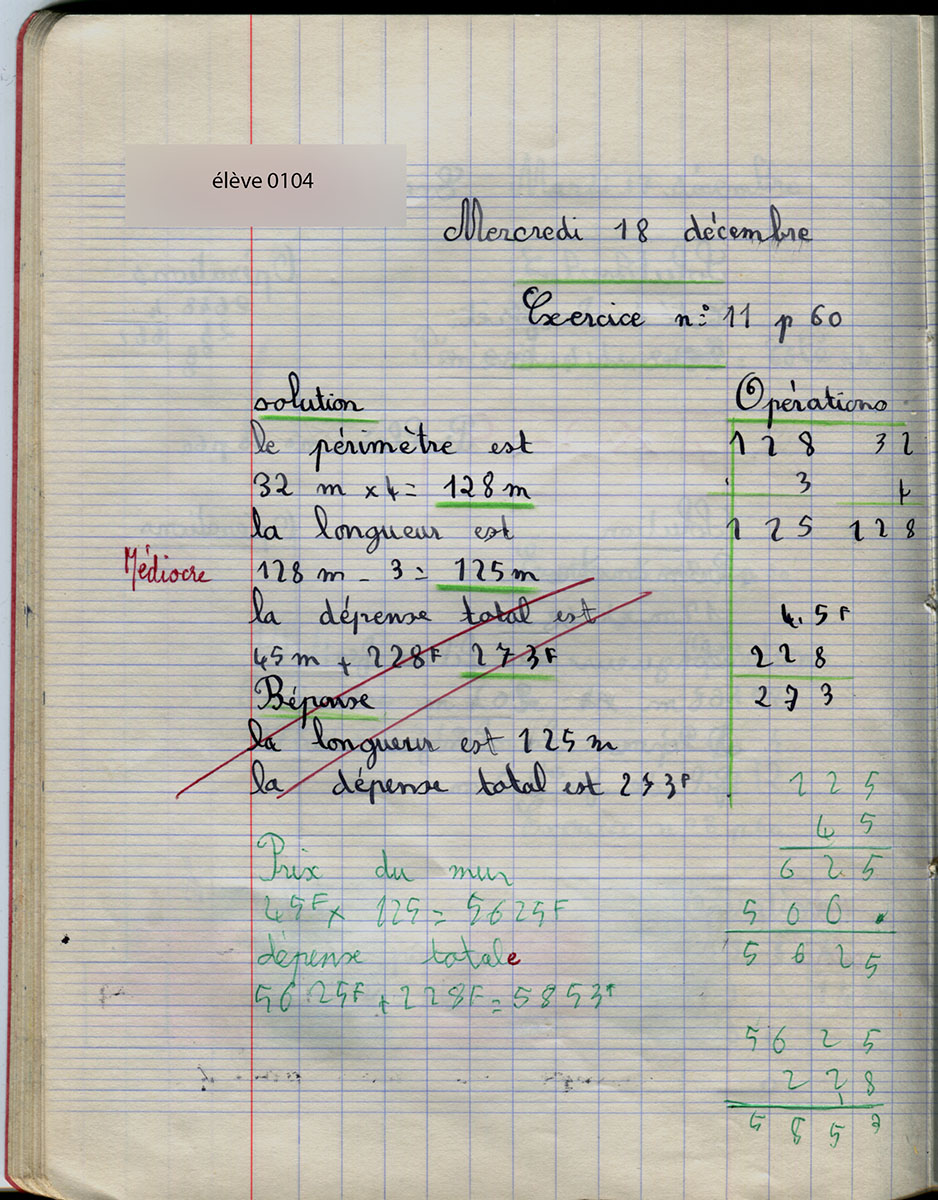 élève 0104
Mercredi 18 décembre
Exercice n° 11 p 60
solution
le périmètre est
32 m x 4 = 128 m
la longueur est
Médiocre
128 m - 3 = 125 m
la dépense total est
45 m + 228F 273F
Réponse
la longueur est 125 m
la dépense total est 273F
Prix du mur
45F x 125 = 5625F
dépense totale
5625F + 228F = 5853F
Opérations
128 32
3 4
125 128
4.5F
228
273
125
45
625
500.
5625
5625
228
5853